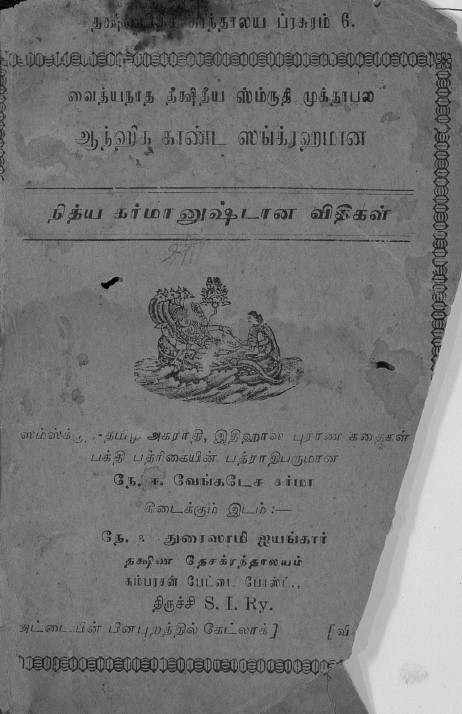 க்ரந்தாலய ப்ரசுரம் 6.
வைத்யநாத தீக்ஷிதீய ஸ்ம்ருதி முக்தாபல
ஆந்ஹிக காண்ட ஸங்க்ரஹமான
நித்ய கர்மானுஷ்டான விதிகள்
அகராதி, இதிஹாஸ புராண கதைகள்
பக்தி பத்ரிகையின் பத்ராதிபருமான
நே. ஈ. வேங்கடேச சர்மா
கிடைக்கும் இடம்:—
நே. துரைஸாமி ஐயங்கார்
தக்ஷிண தேசக்ரந்தாலயம்
கம்பரசன் பேட்டை போஸ்ட்.,
திருச்சி S. I. Ry.
அட்டையின் பின்புறத்தில் கேட்லாக்] [வி